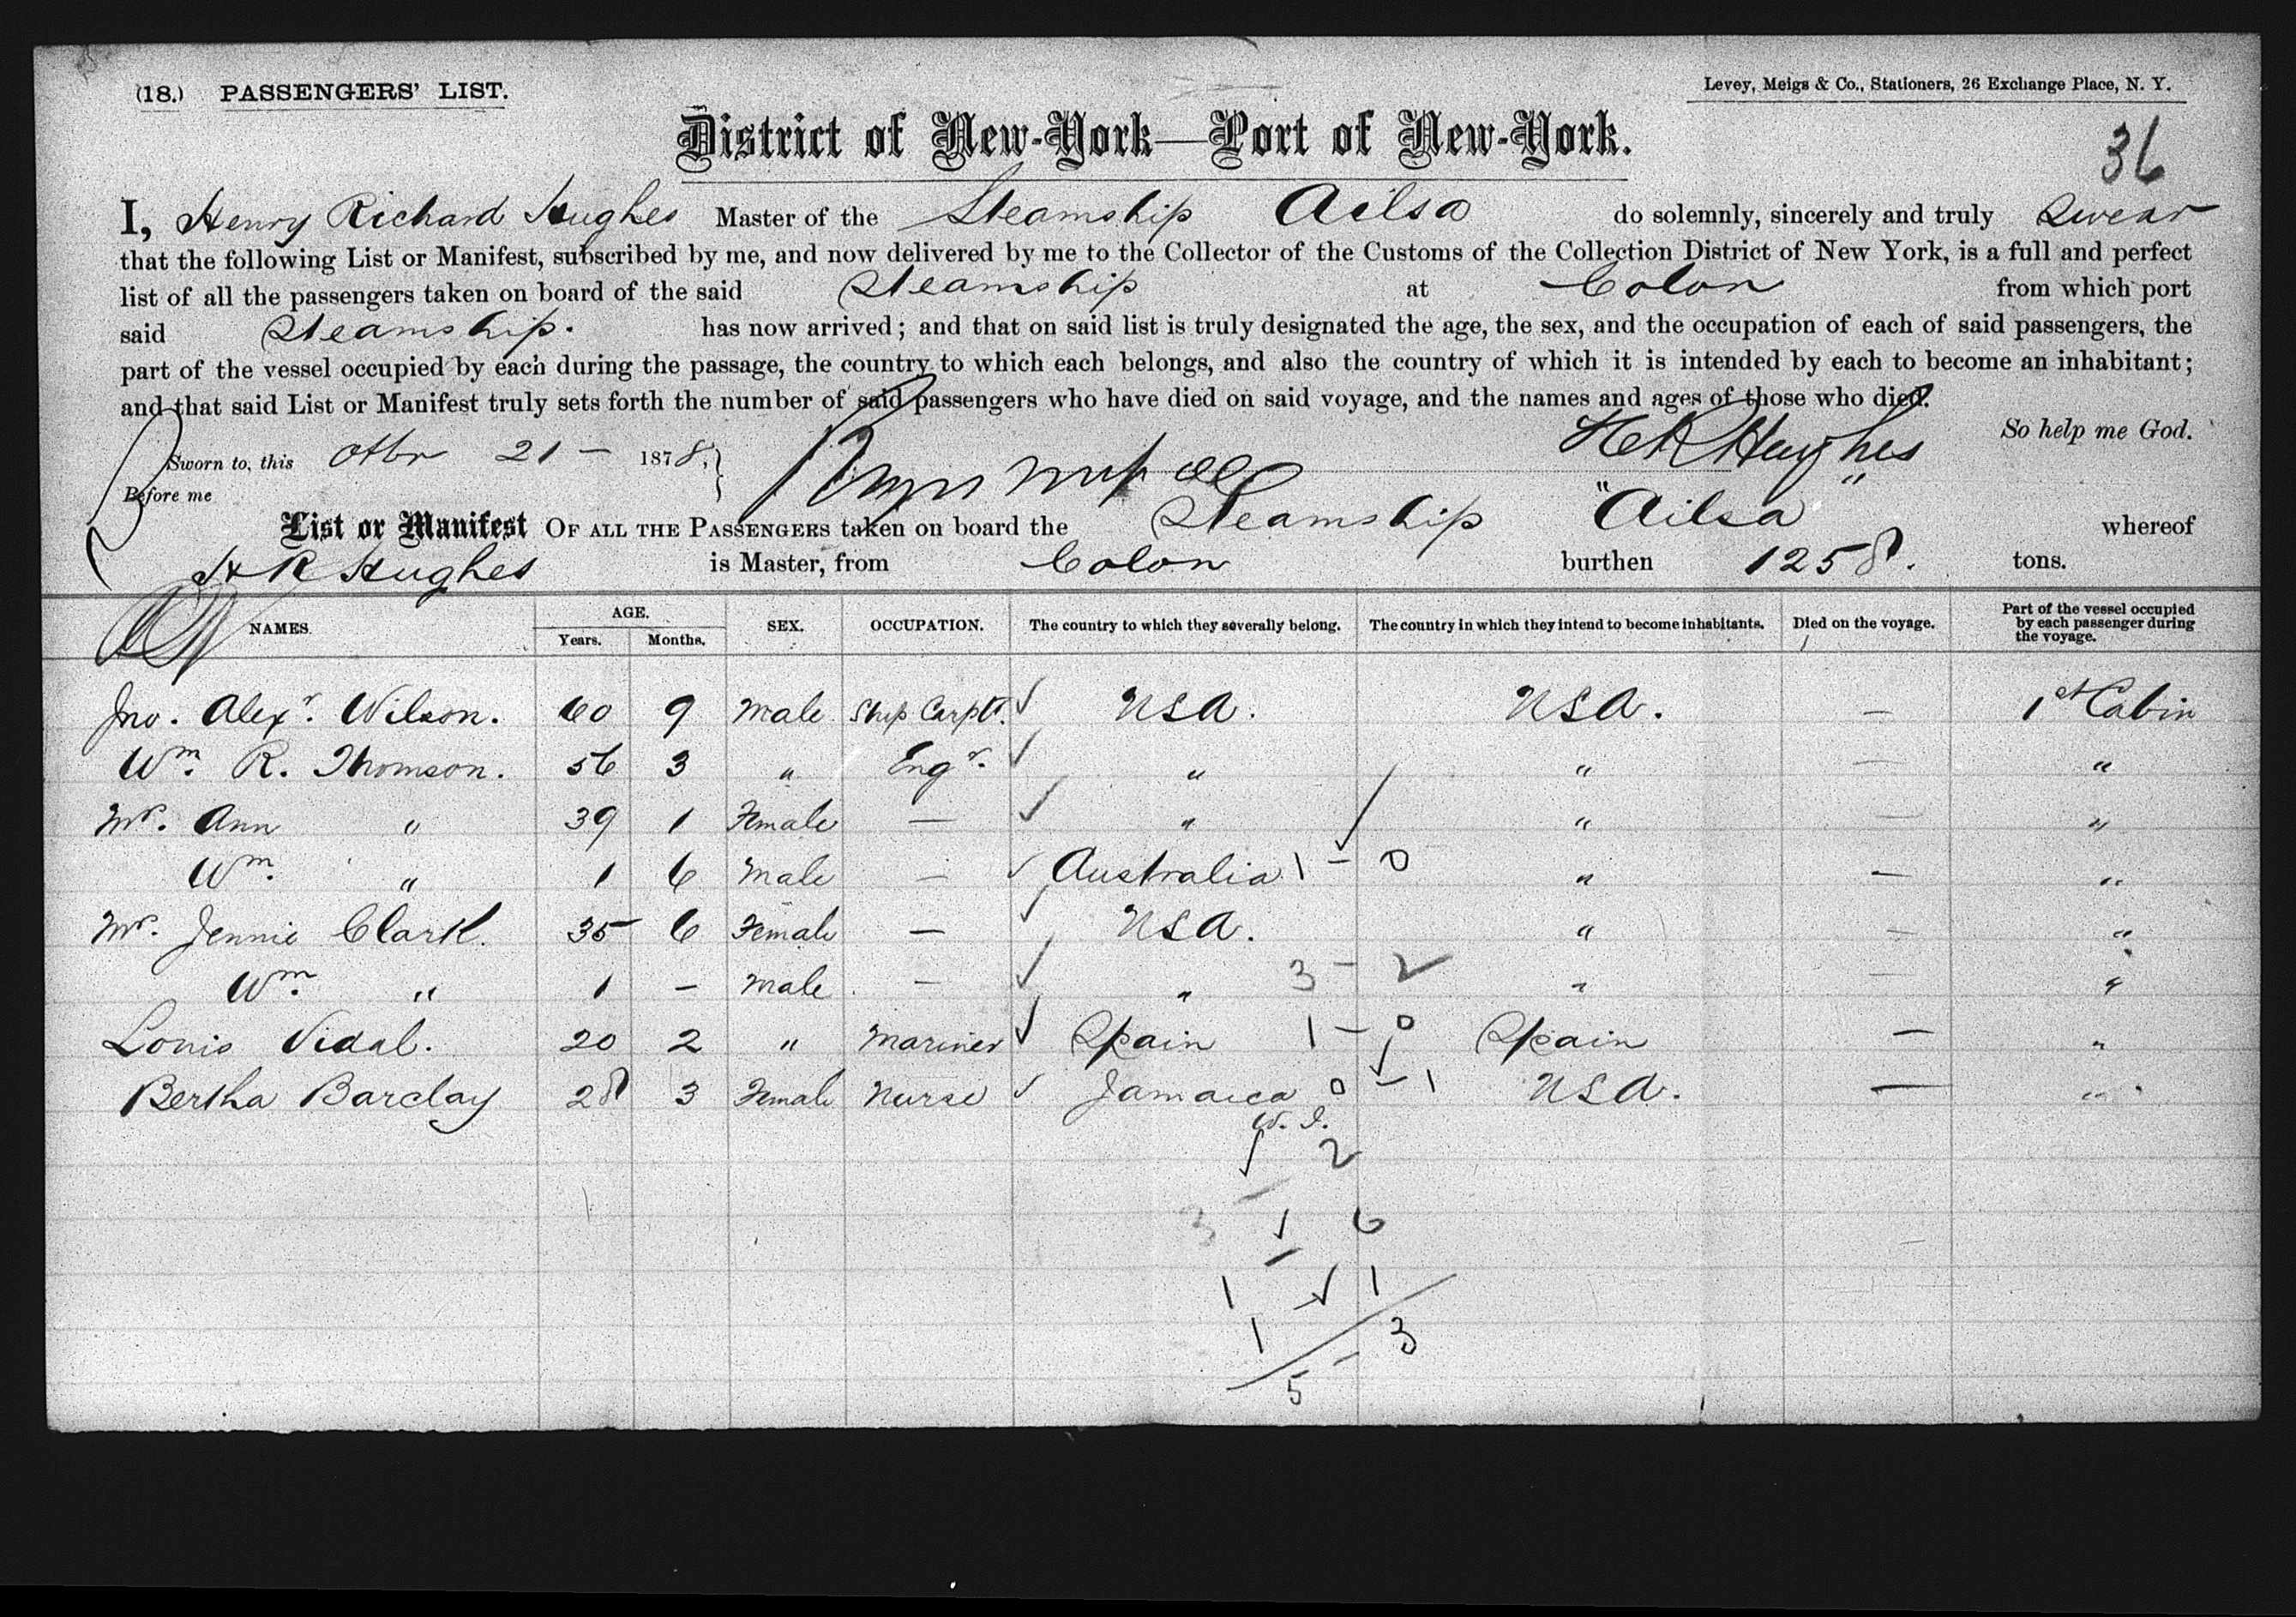 (18.) PASSENGERS' LIST.
Levey, Meigs & Co., Stationers, 26 Exchange Place, N. Y.
District of New-York—Port of New-York.
36
I, Henry Richard Hughes Master of the Steamship Ailsa do solemnly, sincerely and truly swear
that the following List or Manifest, subscribed by me, and now delivered by me to the Collector of the Customs of the Collection District of New York, is a full and perfect
list of all the passengers taken on board of the said Steamship at Colon from which port
said Steamship. has now arrived; and that on said list is truly designated the age, the sex, and the occupation of each of said passengers, the
part of the vessel occupied by each during the passage, the country to which each belongs, and also the country of which it is intended by each to become an inhabitant;
and that said List or Manifest truly sets forth the number of said passengers who have died on said voyage, and the names and ages of those who died.
So help me God.
Sworn to, this Otbr 21 — 1878, H R Hughes
Before me
List or Manifest OF ALL THE PASSENGERS taken on board the Steamship "Ailsa" whereof
H R Hughes is Master, from Colon burthen 1258. tons.
NAMES. AGE. Years. Months. SEX. OCCUPATION. The country to which they severally belong. The country in which they intend to become inhabitants. Died on the voyage. Part of the vessel occupied by each passenger during the voyage.
Jno. Alexr. Wilson. 60 9 Male Ship Carptr. ✓ USA. USA. — 1st Cabin
Wm. R. Thomson. 56 3 " Engr. ✓ " " — "
Mrs. Ann " 39 1 Female — ✓ " " — "
Wm. " 1 6 Male — ✓ Australia 1 - 0 " — "
Mrs. Jennie Clark. 35 6 Female — ✓ USA. " — "
Wm. " 1 - Male — ✓ " 3 - 2 " — "
Louis Vidal. 20 2 " Mariner ✓ Spain 1 - 0 Spain — "
Bertha Barclay 28 3 Female Nurse ✓ Jamaica 0 - 1 USA. — "
W. I.
2
3 1 6
1 ✓ 1
1 3
5